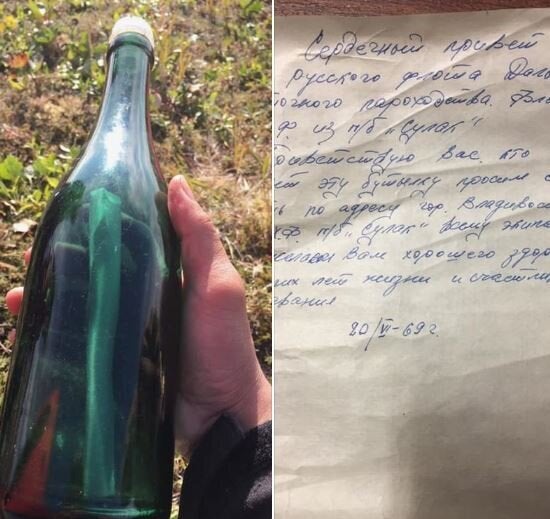 Сердечный привет
русского флота Даль
точного пароходства.
Ф. из п/б „Сулак"
Вас, кто
эту бутылку просим
по адресу гор. Владивос
п/б „Сулак" всему экипа
Вам хорошего здоро
лет жизни и счастли
20/VI-69г.